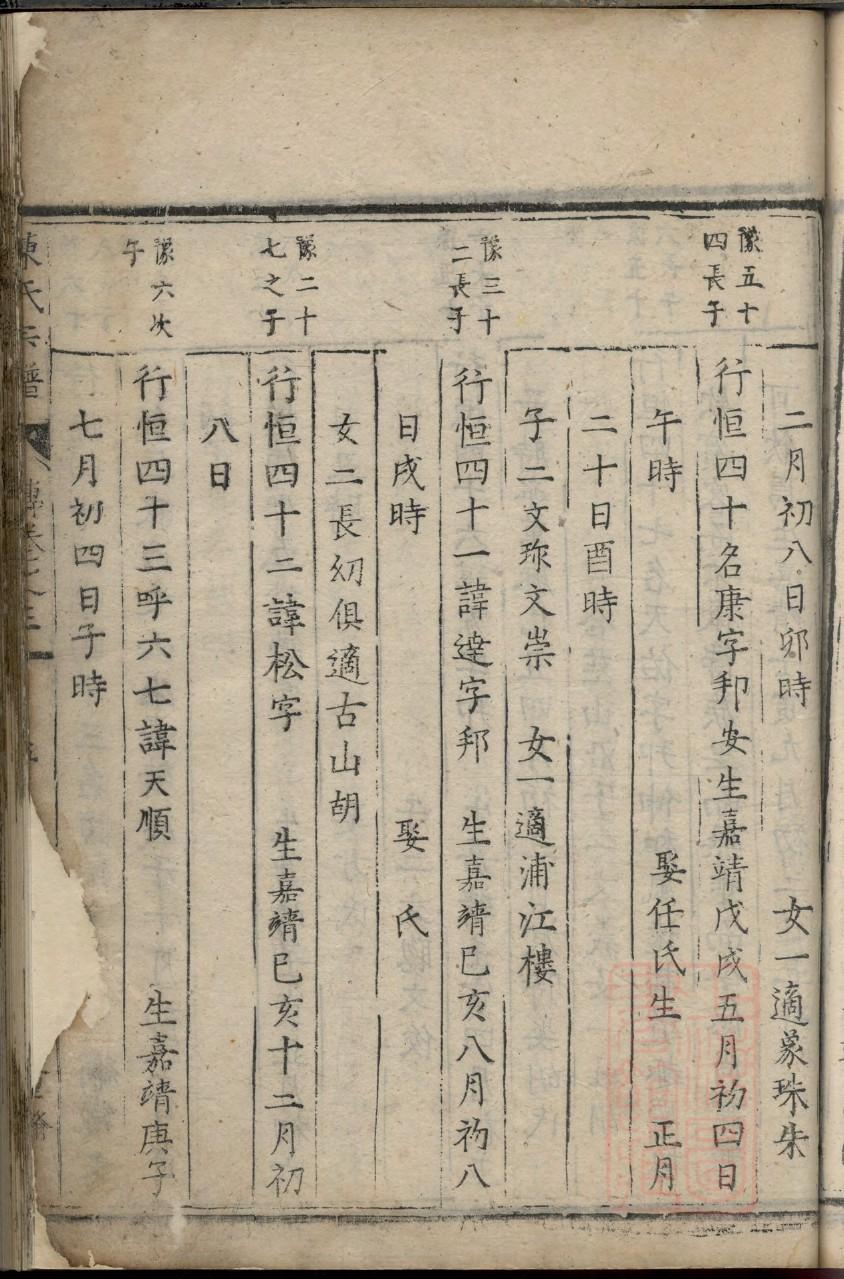 二月初八日卯時 女一適象珠朱
豫五十
四長子
行恒四十名康字邦安生嘉靖戊戌五月初四日
午時 娶任氏生 正月
二十日酉時
子二文珎文崇 女一適浦江樓
豫三十
二長子
行恒四十一諱達字邦 生嘉靖己亥八月初八
日戌時 娶 氏
女二長㓜俱適古山胡
豫二十
七之子
行恒四十二諱松字 生嘉靖己亥十二月初
八日
豫六次
子
行恒四十三呼六七諱天順 生嘉靖庚子
七月初四日子時
陳氏宗譜